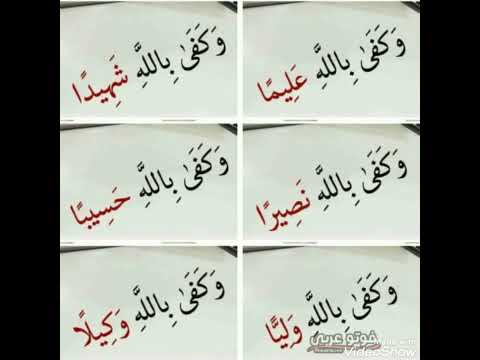 وَكَفَىٰ بِاللَّهِ عَلِيمًا
وَكَفَىٰ بِاللَّهِ شَهِيدًا
وَكَفَىٰ بِاللَّهِ نَصِيرًا
وَكَفَىٰ بِاللَّهِ حَسِيبًا
وَكَفَىٰ بِاللَّهِ وَلِيًّا
وَكَفَىٰ بِاللَّهِ وَكِيلًا
فوتو عربي
Made with
VideoShow